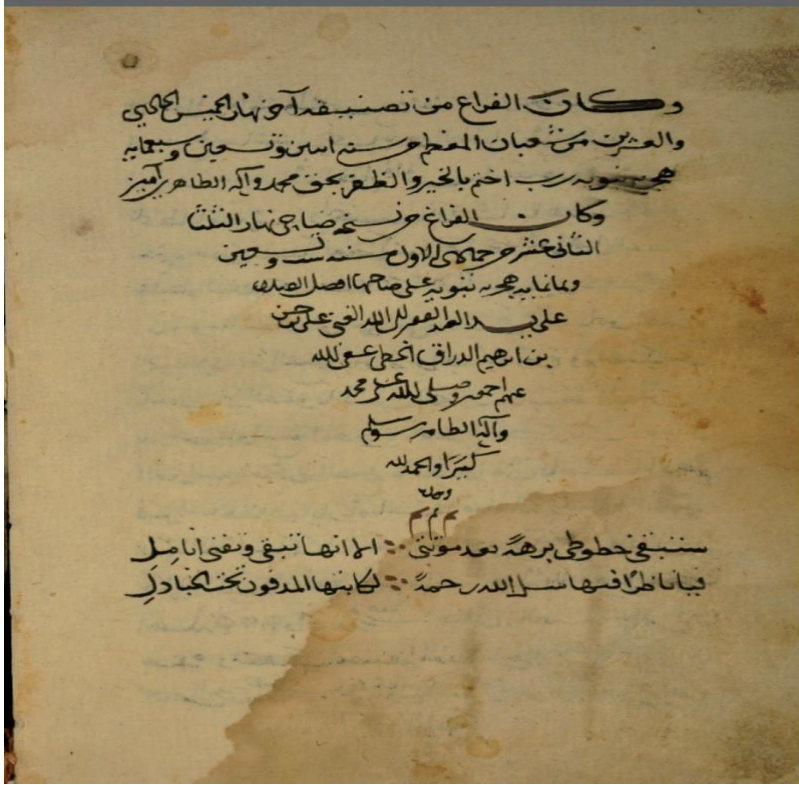 وكان الفراغ من تصنيفه آخر نهار الخميس الحادي
والعشرين من شعبان المعظم من سنة اثنين وتسعين وسبعمايه
هجريه نبويه رب اختم بالخير والظفر بحق محمد وآله الطاهرين آمين
وكان الفراغ من نسخه ضاحي نهار الثلثا
الثاني عشر من جمادى الاول سنه ست وتسعين
وثمانمايه هجريه نبويه على صاحبها افضل الصلاه
على يد العبد الفقير الى الله الغني علي بن حسن
بن ابرهيم عفى الله
عنهم اجمعين وصلى الله على محمد
وآله الطاهرين وسلم
كثيرا والحمد لله
وحده
ستبقى خطوطي برهة بعد موتتي الا انها تبقى وتفنى اناملي
فيا ناظرا فيها سل الله رحمة لكاتبها المدفون تحت الجنادل